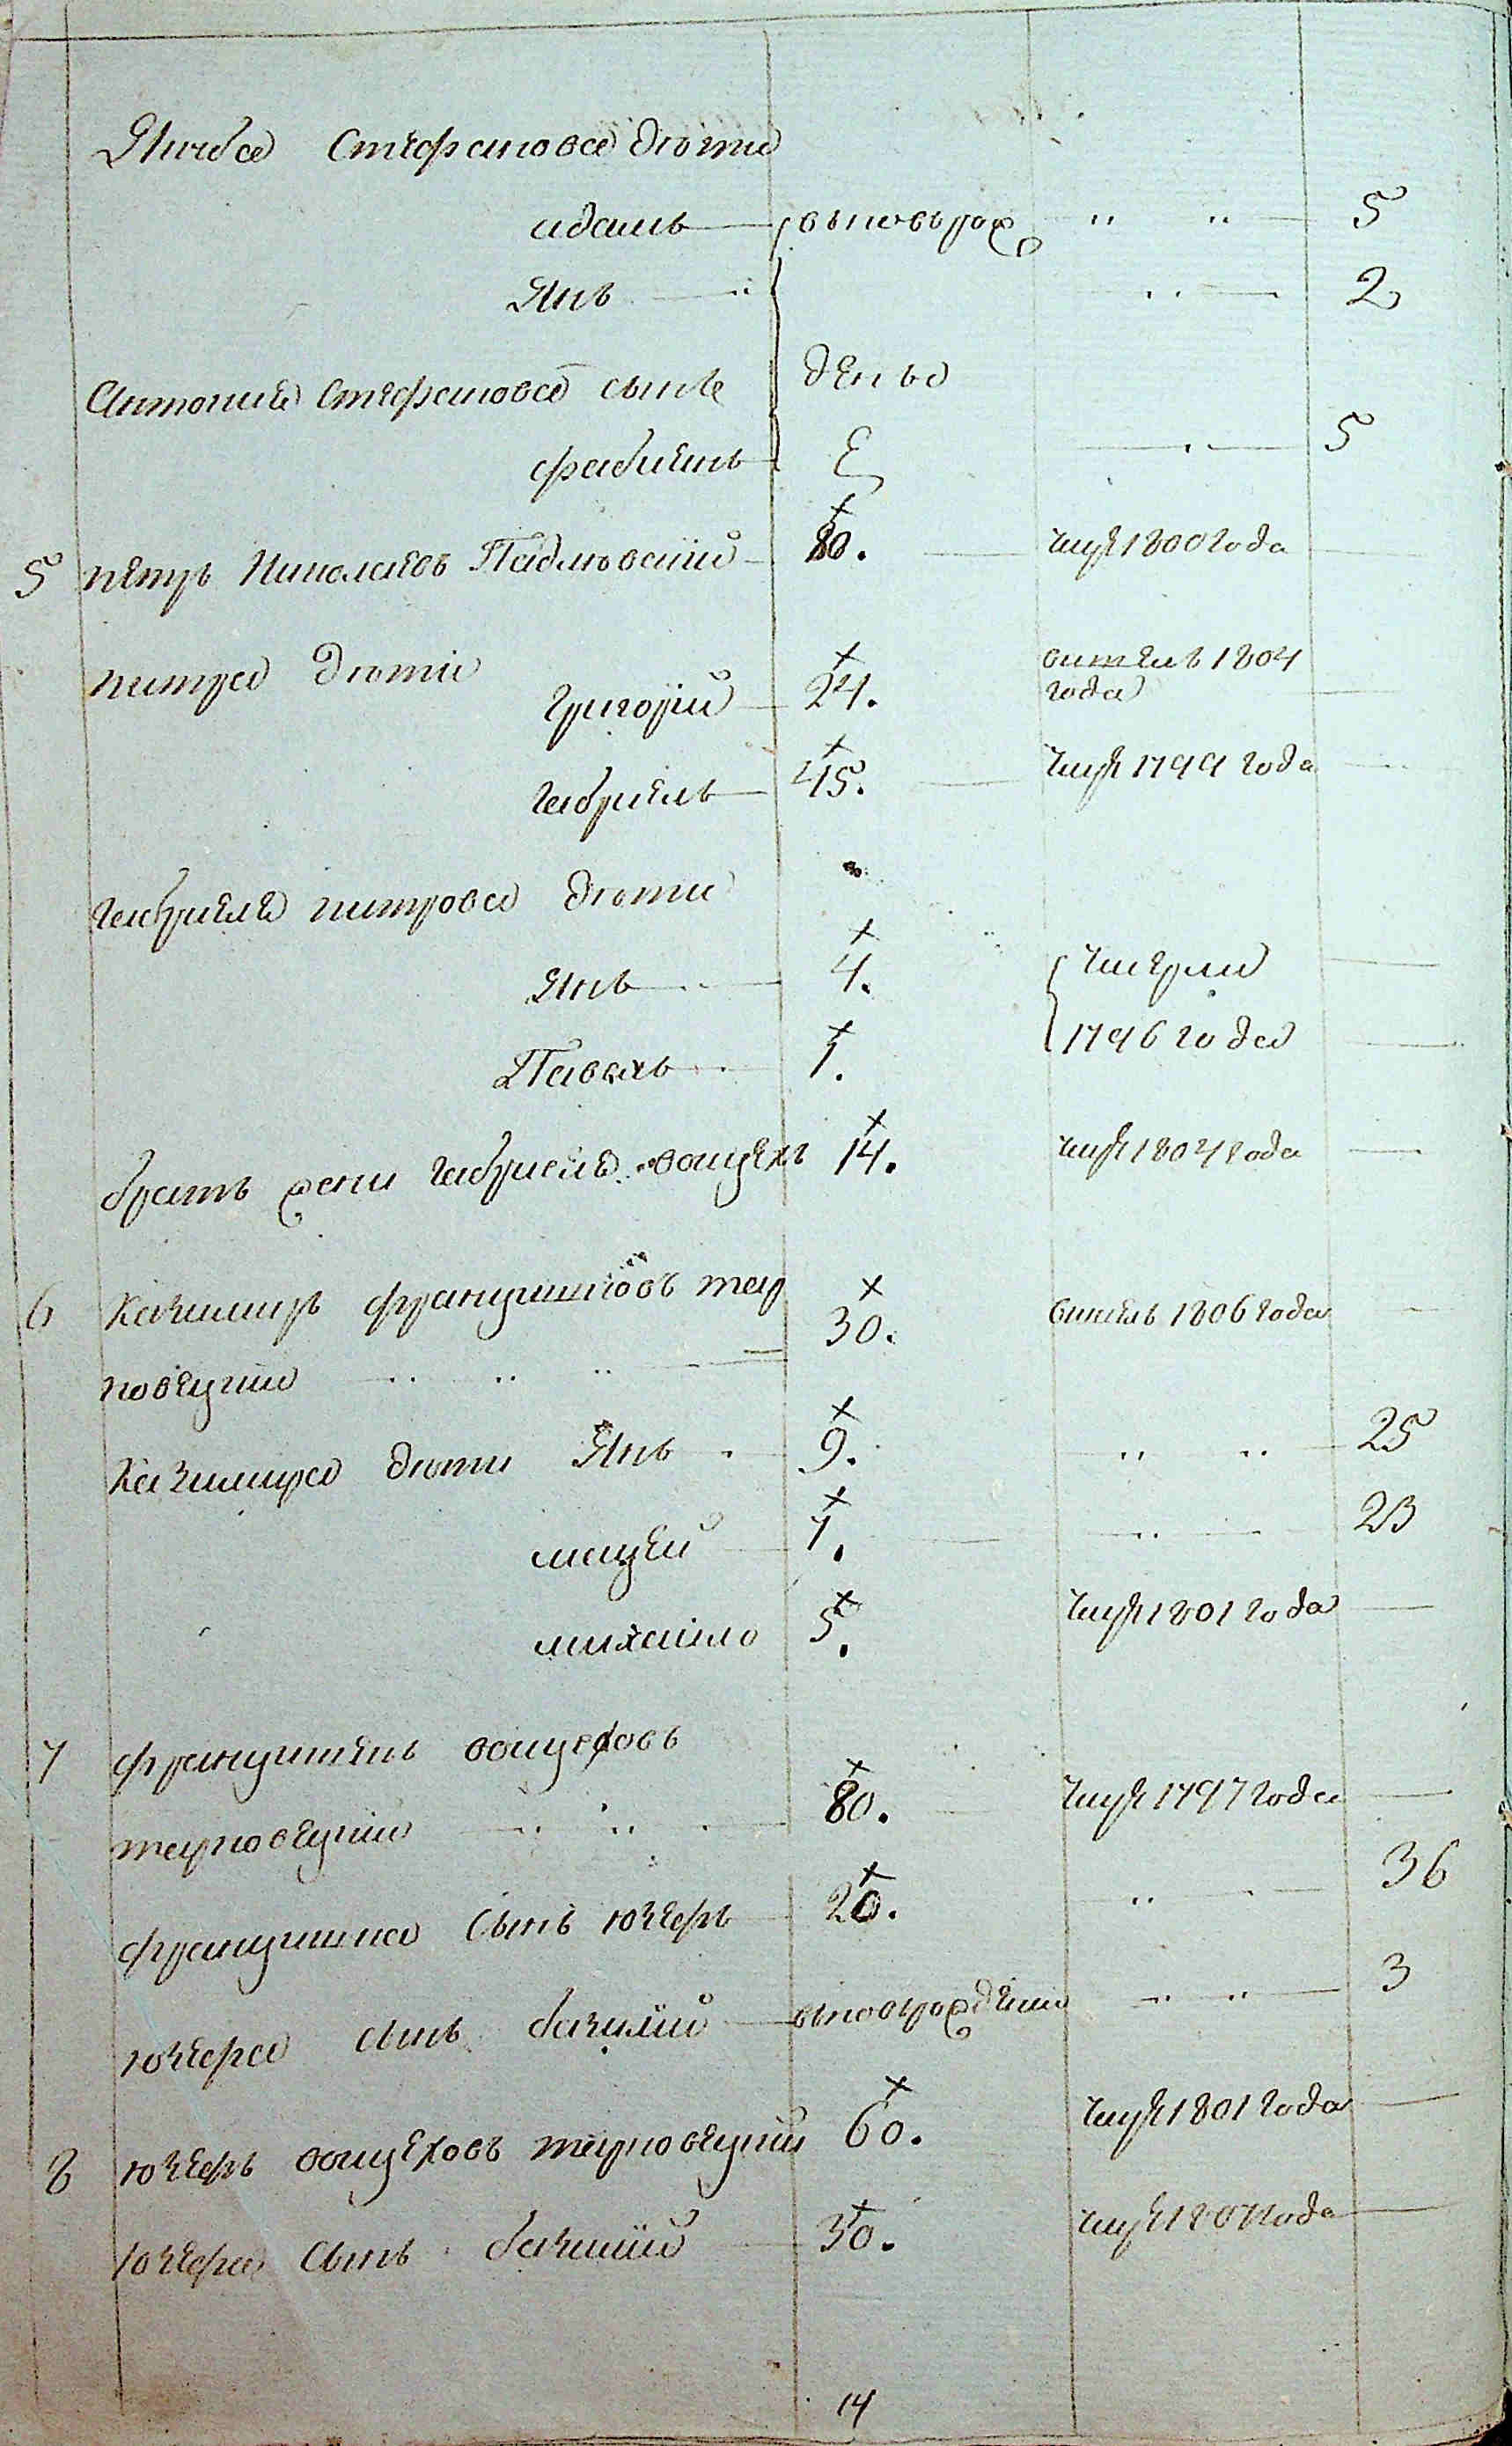 Якуба Стефанова дѣти
адамъ — вновьрож „ „ 5
Янъ — „ 2
Антонія Стефанова сынъ денъ
фабіянъ — 5
5 петръ Николаевъ Падлѣвскій — 80. — умре 1800 года
питра дѣти
Григорій — 24. взятъ въ 1804 года
габріель — 45. — умре 1799 года
габріеля питрова дѣти
Янъ — 4. умерли
Павелъ — 1. 1796 года
братъ жени габріеля войцехъ 14. умре 1804 года
6 Казимиръ францишковъ тар 30. 1806 года
новецкій „ „ „
Казимира дѣти Янъ — 9. „ „ 25
мацей — 7. „ 23
михайло 5. умре 1801 года —
7 францишекъ войцеховъ
тарновецкій „ „ 80. умре 1797 года —
францишка сынъ юзефъ 20. „ 36
юзефа сынъ базилій — вновьрожденъ „ „ 3
8 юзефъ войцеховъ тарновецкій 60. умре 1801 года —
юзефа сынъ базилій 30. умре 1807 года —
14